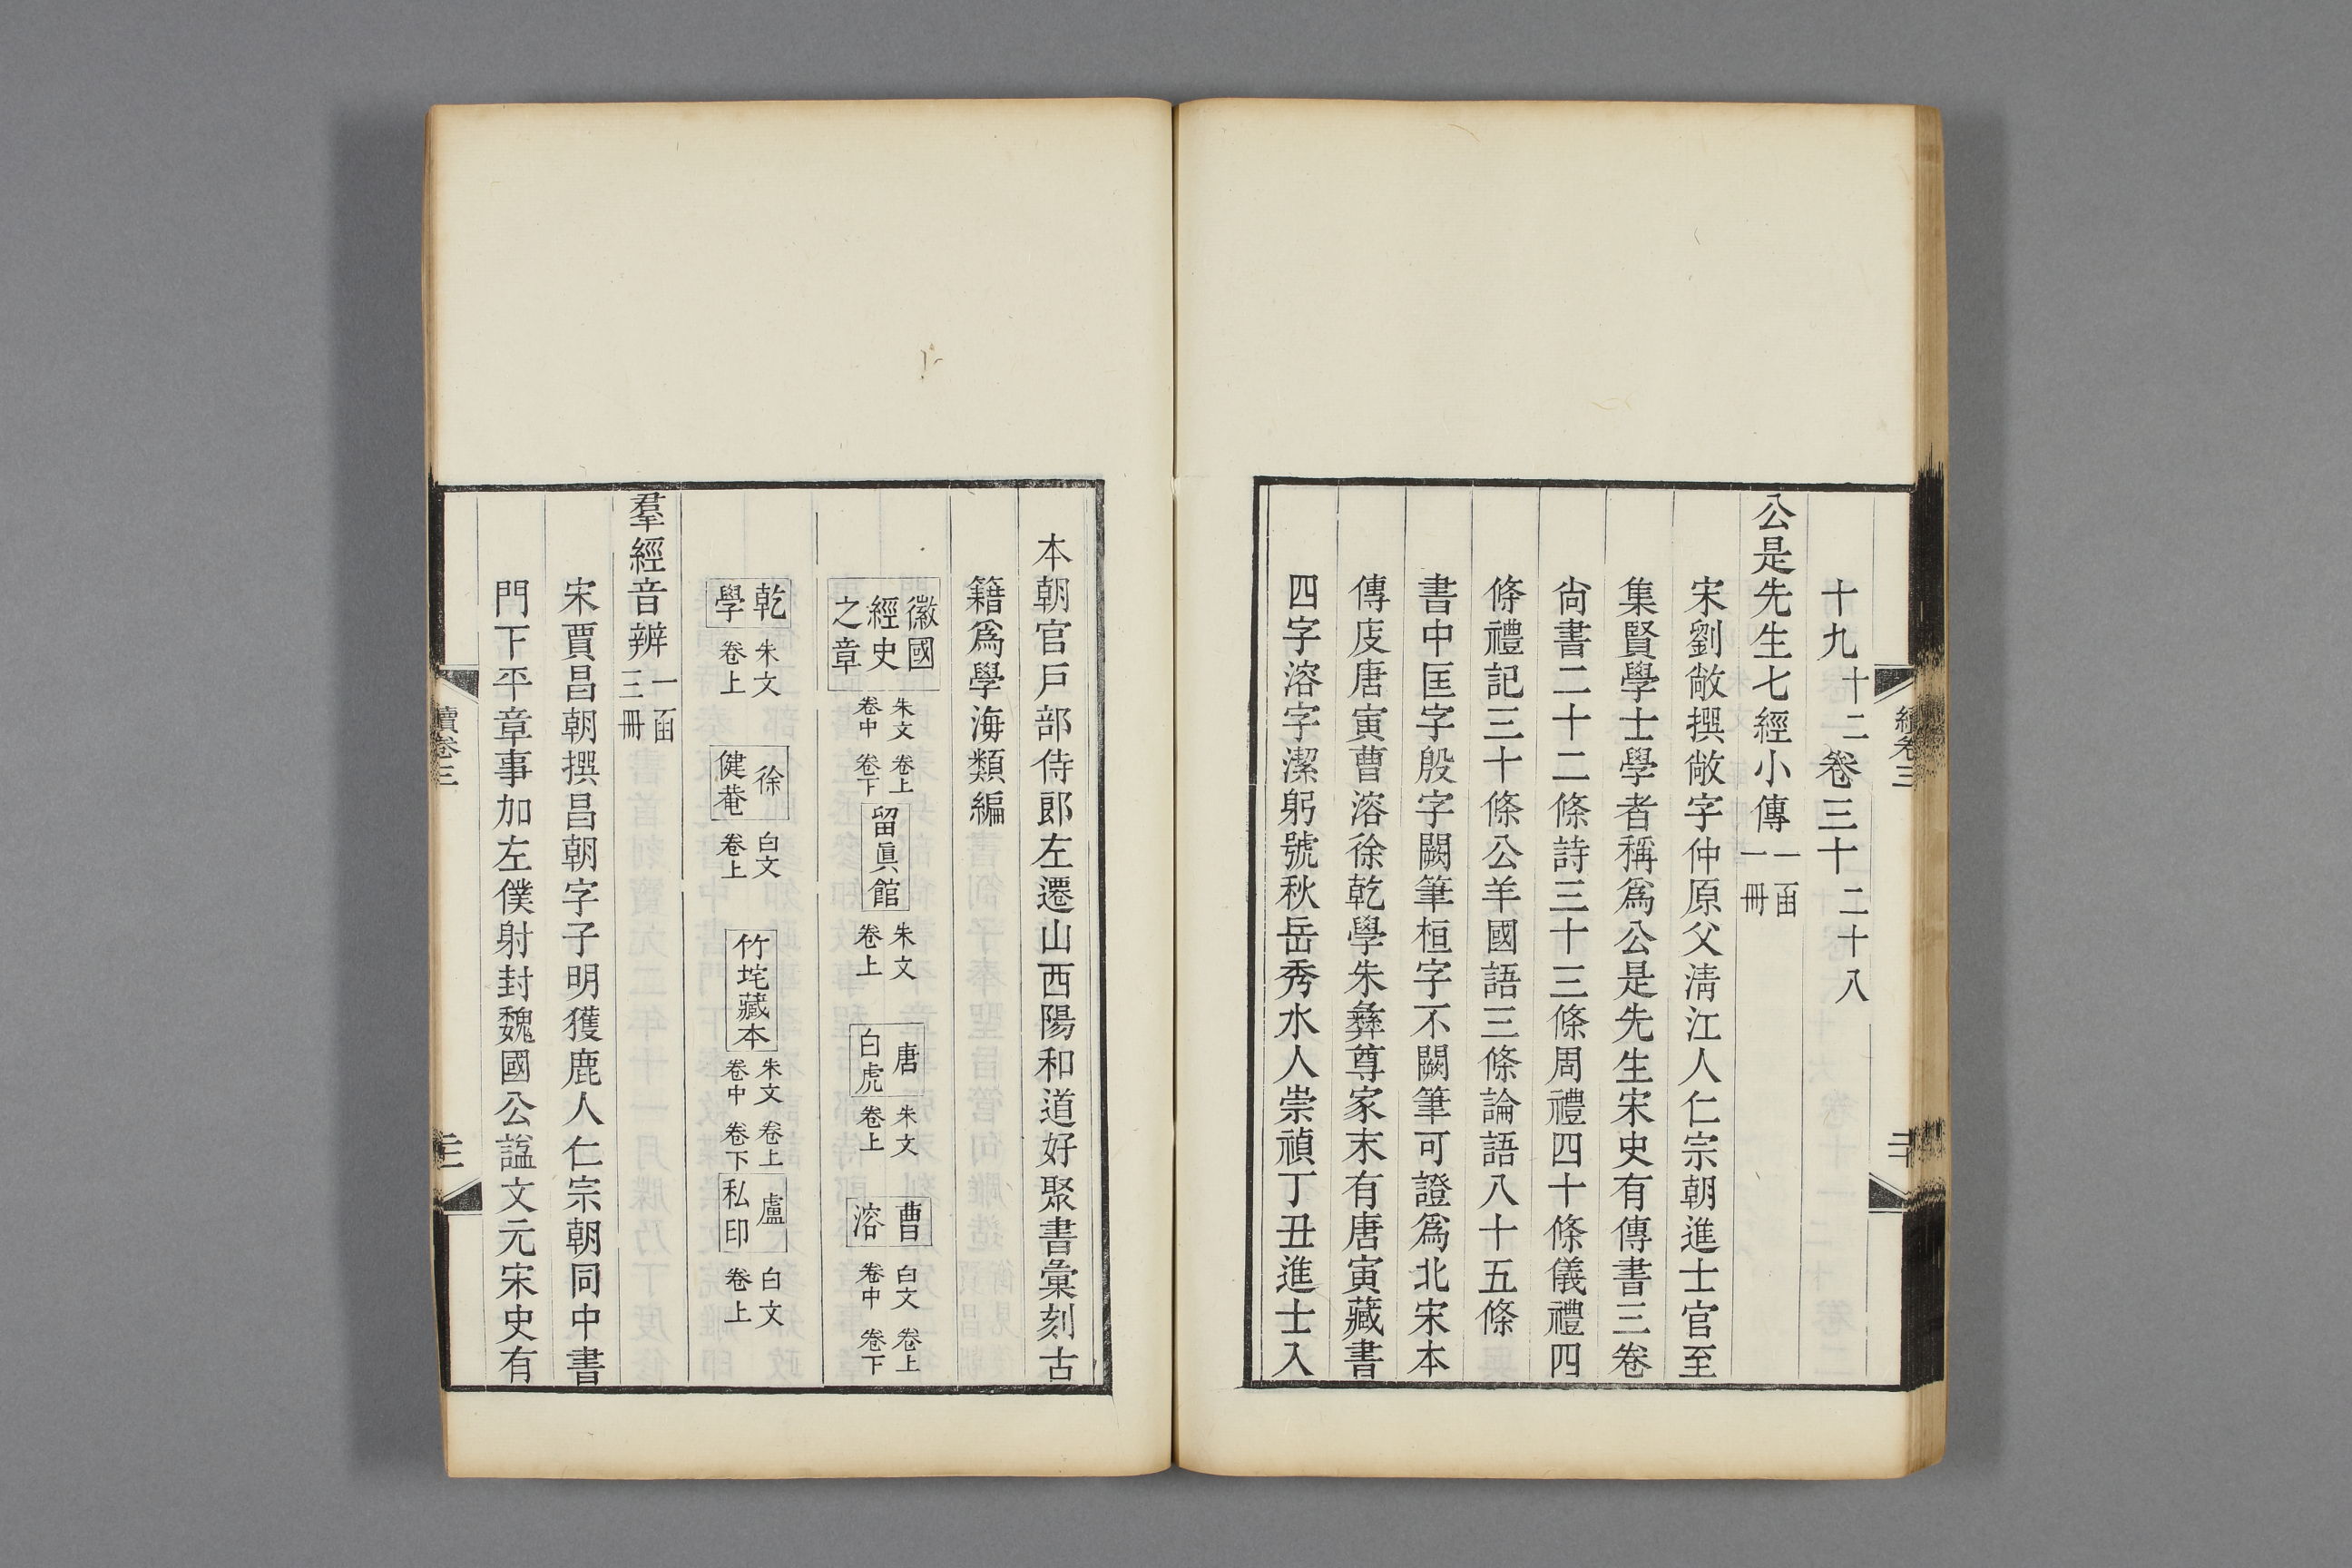 十九十二卷三十二十八
公是先生七經小傳一函一冊
宋劉敞撰敞字仲原父清江人仁宗朝進士官至
集賢學士學者稱為公是先生宋史有傳書三卷
尙書二十二條詩三十三條周禮四十條儀禮四
條禮記三十條公羊國語三條論語八十五條
書中匡字殷字闕筆桓字不闕筆可證爲北宋本
傳庋唐寅曹溶徐乾學朱彝尊家末有唐寅藏書
四字溶字潔躬號秋岳秀水人崇禎丁丑進士入
本朝官戸部侍郎左遷山西陽和道好聚書彙刻古
籍爲學海類編
徽國經史之章 朱文 卷上 卷中 卷下 留眞館 朱文 卷上 唐白虎 朱文 卷上 曹溶 白文 卷上 卷中 卷下
乾學 朱文 卷上 徐健菴 白文 卷上 竹垞藏本 朱文 卷上 卷中 卷下 盧私印 白文 卷上
羣經音辨一函三冊
宋賈昌朝撰昌朝字子明獲鹿人仁宗朝同中書
門下平章事加左僕射封魏國公諡文元宋史有